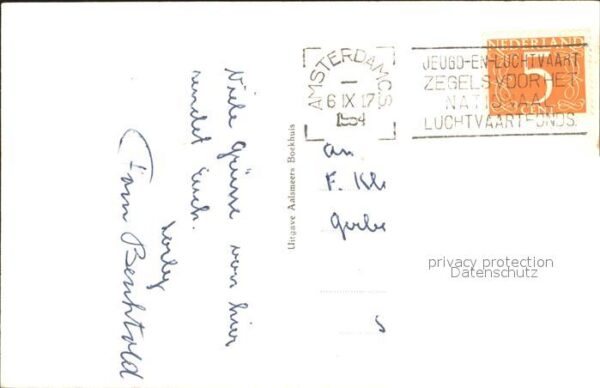 Viele Grüsse von hier
sendet Euch.
Lorley
Fam Benhtold
Uitgave Aalsmeers Boekhuis
AMSTERDAM C.S.
6 IX 17
1954
JEUGD-EN-LUCHTVAART
ZEGELS VOOR HET
NATIONAAL
LUCHTVAARTFONDS.
NEDERLAND
5
CENT
an
F. Kl
s
privacy protection
Datenschutz